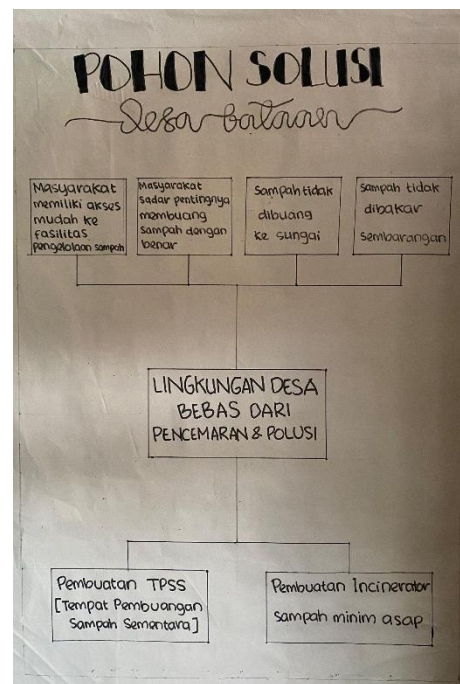 POHON SOLUSI
Desa Bataan
Masyarakat
memiliki akses
mudah ke
fasilitas
pengelolaan sampah
Masyarakat
sadar pentingnya
membuang
sampah dengan
benar
Sampah tidak
dibuang
ke sungai
sampah tidak
dibakar
sembarangan
LINGKUNGAN DESA
BEBAS DARI
PENCEMARAN & POLUSI
Pembuatan TPSS
[Tempat Pembuangan
Sampah Sementara]
Pembuatan Incinerator
sampah minim asap